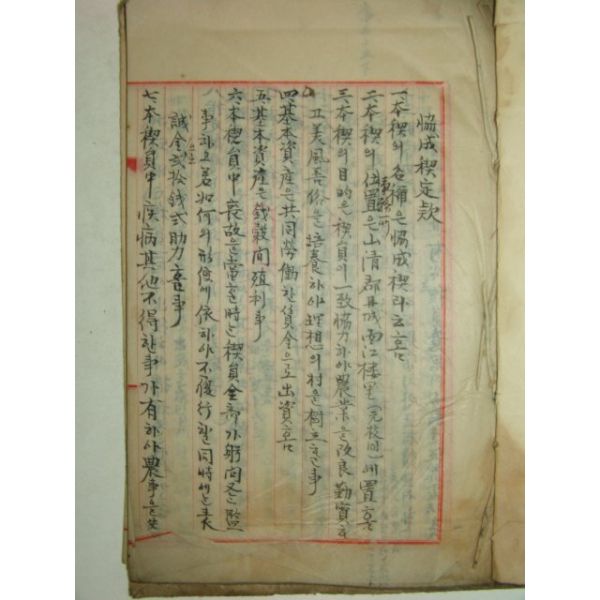 協成稧定款
一、本稧의名稱은協成稧라云홈
二、本稧의位置은山清郡丹城面江樓里에置홈
三、本稧의目的은稧員이一致協力하야農業을改良勤實하
고美風善俗을培養하야理想의村을樹立할事
四、基本資産은共同勞働한賃金으로出資홈
五、基本資産은錢穀間殖利事
六、本稧員中喪故을當할時는稧員全部가躬問又는監
事하고若如何의形便에依하야不履行한同時에는表
誠金으로貳拾錢式助力할事
七、本稧員中疾病其他不得한事가有하야農事을